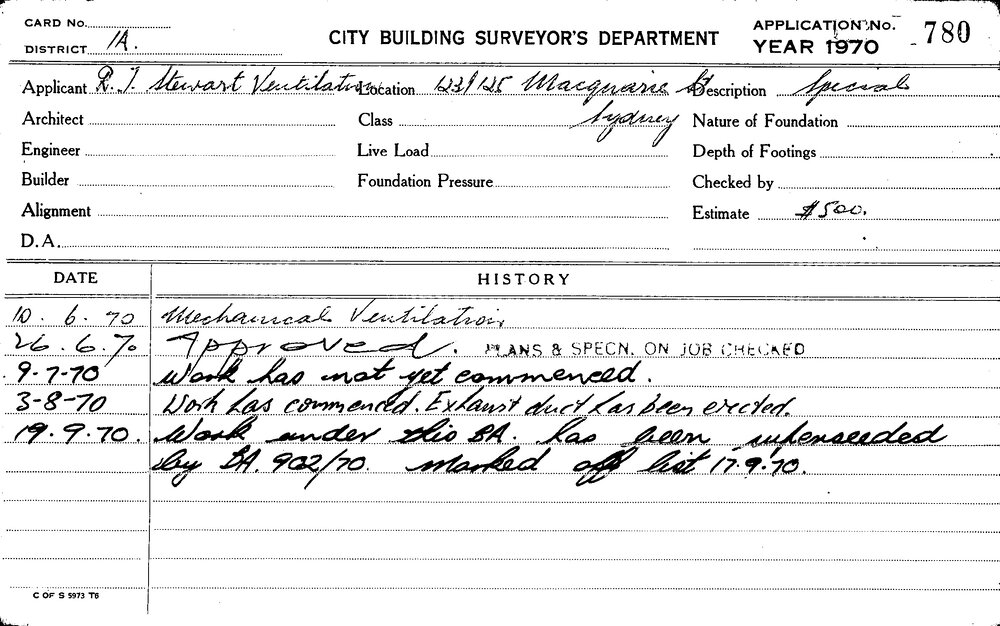 CARD No.
DISTRICT 1A.
CITY BUILDING SURVEYOR'S DEPARTMENT
APPLICATION No. 780
YEAR 1970
Applicant R. J. Stewart Ventilation Location 123/125 Macquarie St Description Special
Architect Class Sydney Nature of Foundation
Engineer Live Load Depth of Footings
Builder Foundation Pressure Checked by
Alignment Estimate $500.
D.A.
DATE HISTORY
10. 6. 70 Mechanical Ventilation.
26.6.70 Approved. PLANS & SPECN. ON JOB CHECKED
9-7-70 Work has not yet commenced.
3-8-70 Work has commenced. Exhaust duct has been erected.
19.9.70. Work under this BA. has been superseeded
by BA. 902/70. marked off list 17.9.70.
C OF S 5973 T6